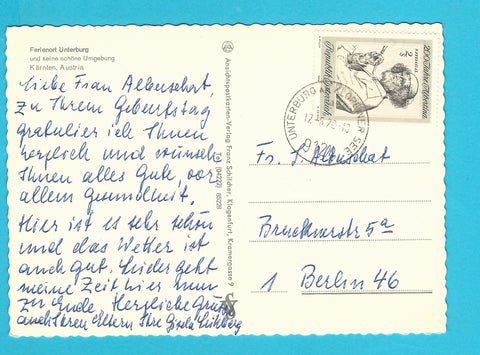 Ferienort Unterburg
und seine schöne Umgebung
Kärnten, Austria
Liebe Frau Albenschat,
zu Ihrem Geburtstag
gratuliere ich Ihnen
herzlich und wünsche
Ihnen alles Gute, vor
allem Gesundheit.
Hier ist es sehr schön
und das Wetter ist
auch gut. Leider geht
meine Zeit hier nun
zu Ende. Herzliche Grüße
auch Ihren Eltern Ihre Gisela
Ansichtspostkarten-Verlag Franz Schilcher, Klagenfurt, Kramergasse 9
Tel. (04222) 88228
200 Jahre Albertina
Republik Österreich
S 2
UNTERBURG AM KLOPEINER SEE
Fr. J. Albenschat
Brucknerstr 5a
1 Berlin 46